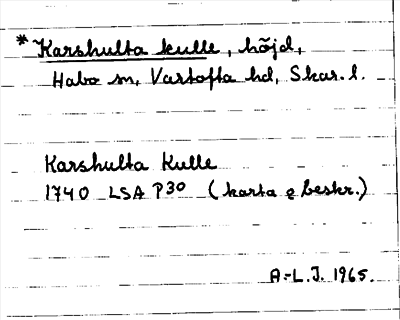 *Karshulta kulle, höjd,
Habo sn, Vartofta hd, Skar. l.
Karshulta Kulle
1740 LSA P30 (karta o beskr.)
A.-L.J. 1965.